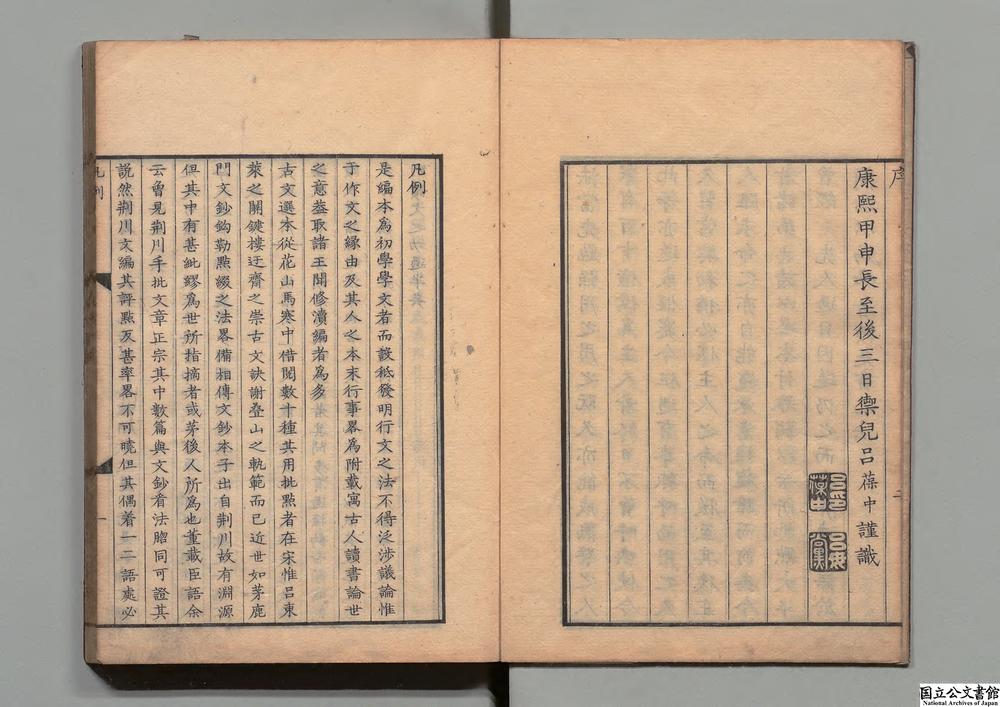 序
康熙甲申長至後三日禦兒呂葆中謹識
凡例
是編本為初學學文者而設秪發明行文之法不得泛涉議論惟
于作文之緣由及其人之本末行事畧為附載寓古人讀書論世
之意葢取諸王聞修瀆編者為多
古文選本從花山馬寒中借閱數十種其用批點者在宋惟呂東
萊之關鍵樓迂齋之崇古文訣謝疊山之軌範而已近世如茅鹿
門文鈔鈎勒點綴之法畧備相傳文鈔本子出自荆川故有淵源
但其中有甚紕繆為世所指摘者或茅後人所為也董載臣語余
云曾見荆川手批文章正宗其中數篇與文鈔看法脗同可證其
說然荆川文編其評點反甚率畧不可曉但其偶着一二語處必
凡例
一
国立公文書館
National Archives of Japan